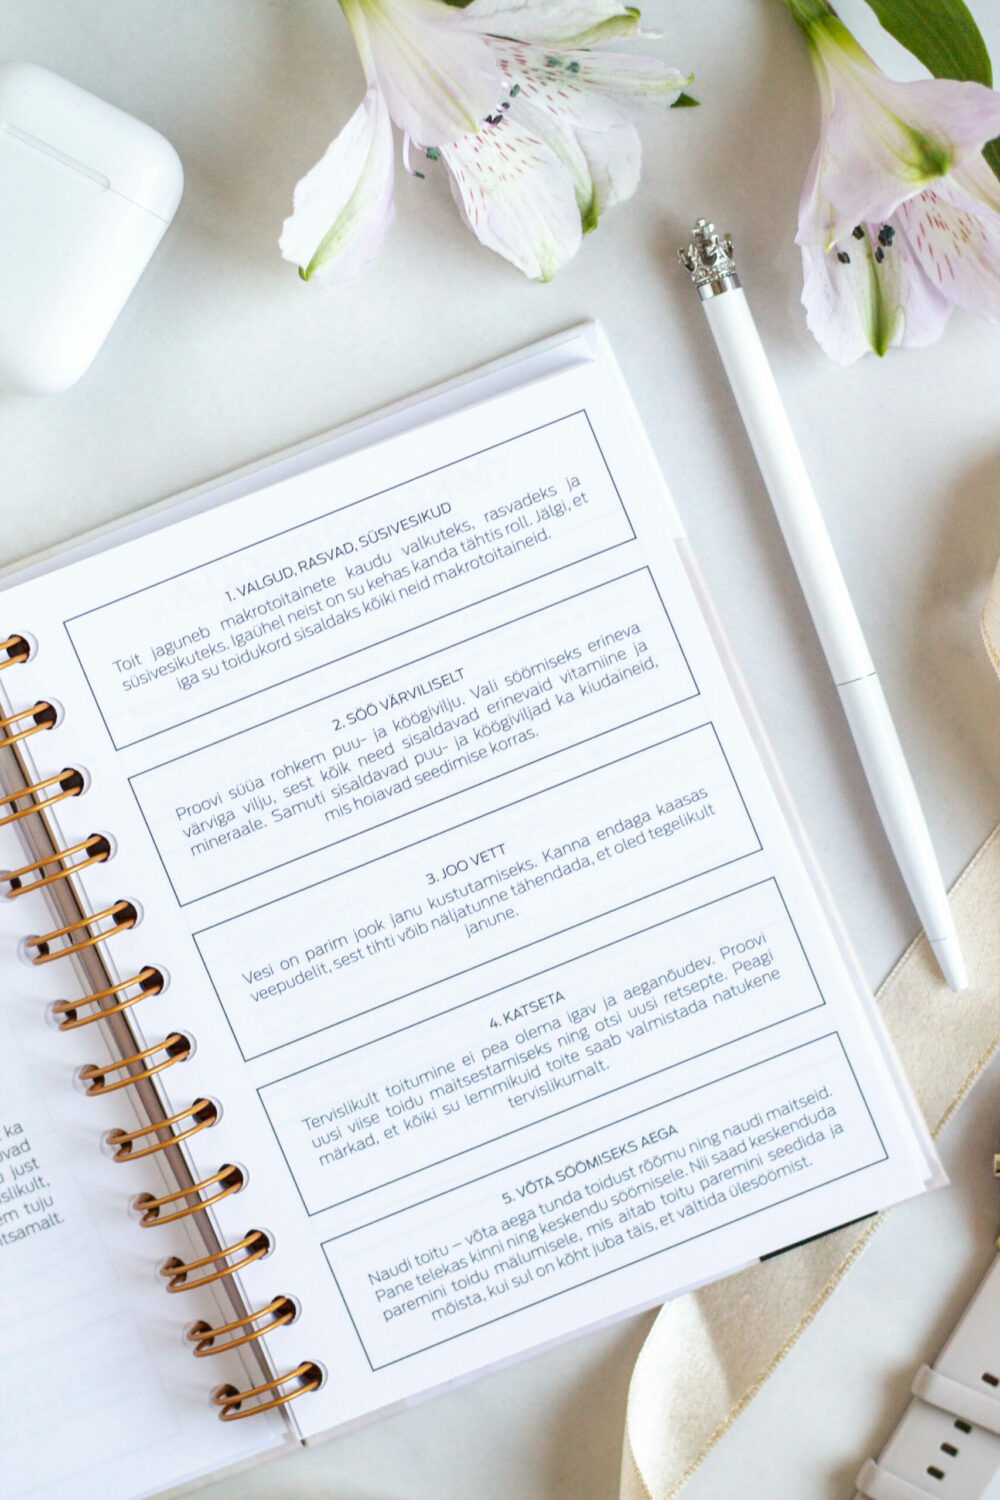 ka
just
tuju
1. VALGUD, RASVAD, SÜSIVESIKUD
Toit jaguneb makrotoitainete kaudu valkuteks, rasvadeks ja
süsivesikuteks. Igaühel neist on su kehas kanda tähtis roll. Jälgi, et
iga su toidukord sisaldaks kõiki neid makrotoitaineid.
2. SÖÖ VÄRVILISELT
Proovi süüa rohkem puu- ja köögivilju. Vali söömiseks erineva
värviga vilju, sest kõik need sisaldavad erinevaid vitamiine ja
mineraale. Samuti sisaldavad puu- ja köögiviljad ka kiudaineid,
mis hoiavad seedimise korras.
3. JOO VETT
Vesi on parim jook janu kustutamiseks. Kanna endaga kaasas
veepudelit, sest tihti võib näljatunne tähendada, et oled tegelikult
janune.
4. KATSETA
Tervislikult toitumine ei pea olema igav ja aeganõudev. Proovi
uusi viise toidu maitsestamiseks ning otsi uusi retsepte. Peagi
märkad, et kõiki su lemmikuid toite saab valmistada natukene
tervislikumalt.
5. VÕTA SÖÖMISEKS AEGA
Naudi toitu – võta aega tunda toidust rõõmu ning naudi maitseid.
Pane telekas kinni ning keskendu söömisele. Nii saad keskenduda
paremini toidu mälumisele, mis aitab toitu paremini seedida ja
mõista, kui sul on kõht juba täis, et vältida ülesöömist.